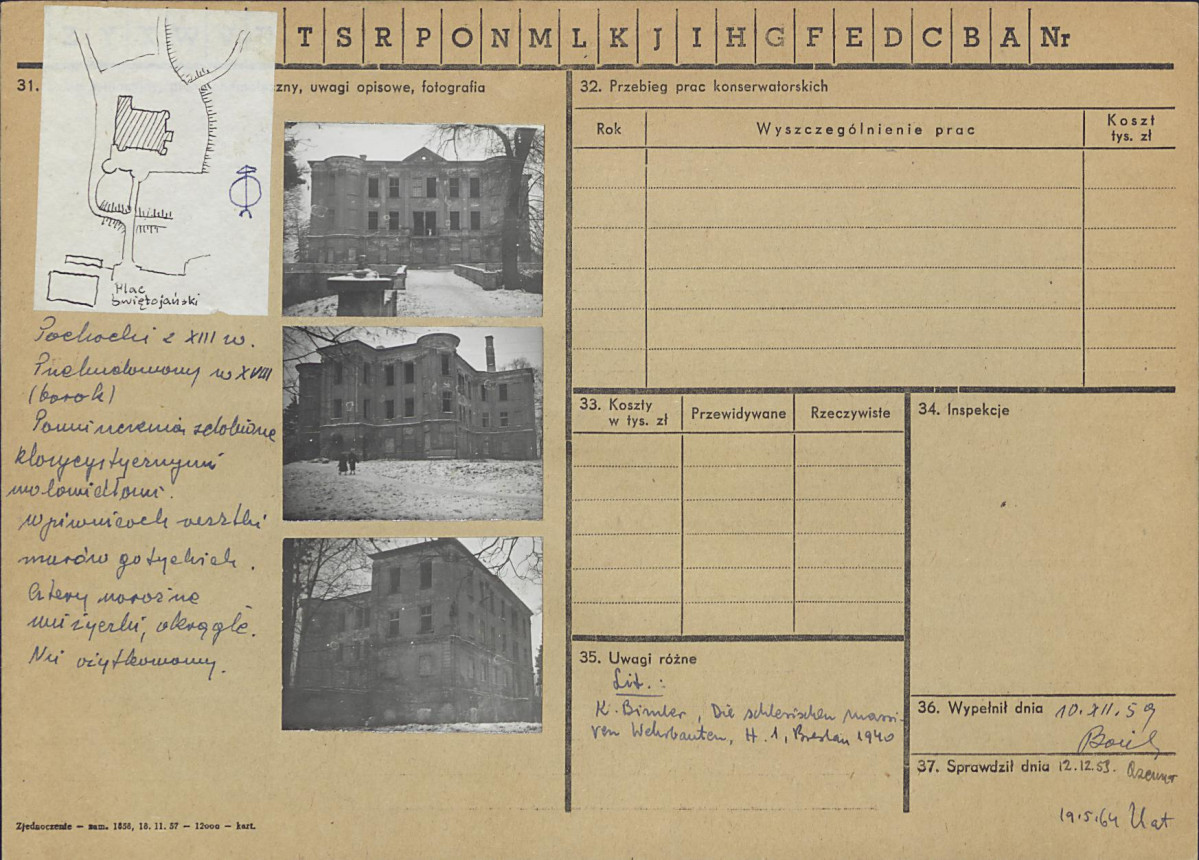 T S R P O N M L K J I H G F E D C B A Nr
31.
zny, uwagi opisowe, fotografia
Plac
Świętojański
Pochodzi z XIII w.
Przebudowany w XVIII
(barok)
Pomieszczenia zdobione
klasycystycznymi
malowidłami.
W piwnicach resztki
murów gotyckich.
Cztery narożne
wieżyczki, okrągłe.
Nie użytkowany.
Zjednoczenie — zam. 1856, 18. 11. 57 — 12000 — kart.
32. Przebieg prac konserwatorskich
Rok
Wyszczególnienie prac
Koszt
tys. zł
33. Koszty
w tys. zł
Przewidywane
Rzeczywiste
34. Inspekcje
35. Uwagi różne
Lit.:
K. Bimler, Die schlesischen massi-
ven Wehrbauten, H. 1, Breslau 1940
36. Wypełnił dnia 10.XII.59
37. Sprawdził dnia 12.12.59.
19.5.64